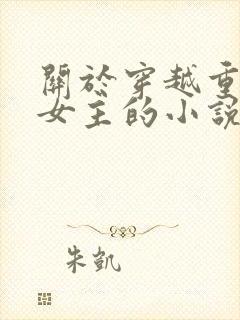 關於穿越重
女主的小說
朱凱